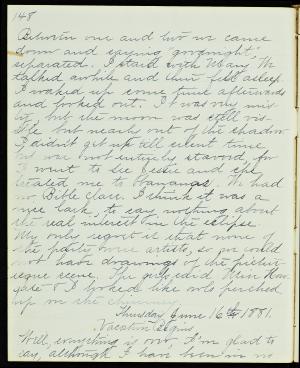 148
Between one and two we came
down and saying "goodnight"
separated. I staid with Mary W. We
talked awhile and then fell asleep.
I waked up some time afterwards
and looked out. It was very mis
ty, but the moon was still vis-
ible but nearly out of the shadow
I didn't get up till silent time,
but was not entirely starved, for
I went to see Bessie and she
treated me to bananas. We had
no Bible Class. I think it was a
nice lark, to say nothing about
the real interest in the eclipse.
My only regret is that none of
the party were artists, so we could
not have drawings of the pictur-
esque scene. The girls said Miss
& I looked like owls perched
up on the chimney.
Thursday June 16th, 1881.
Vacation Begins
Well, everything is over, I'm glad to
say, although I have been in no